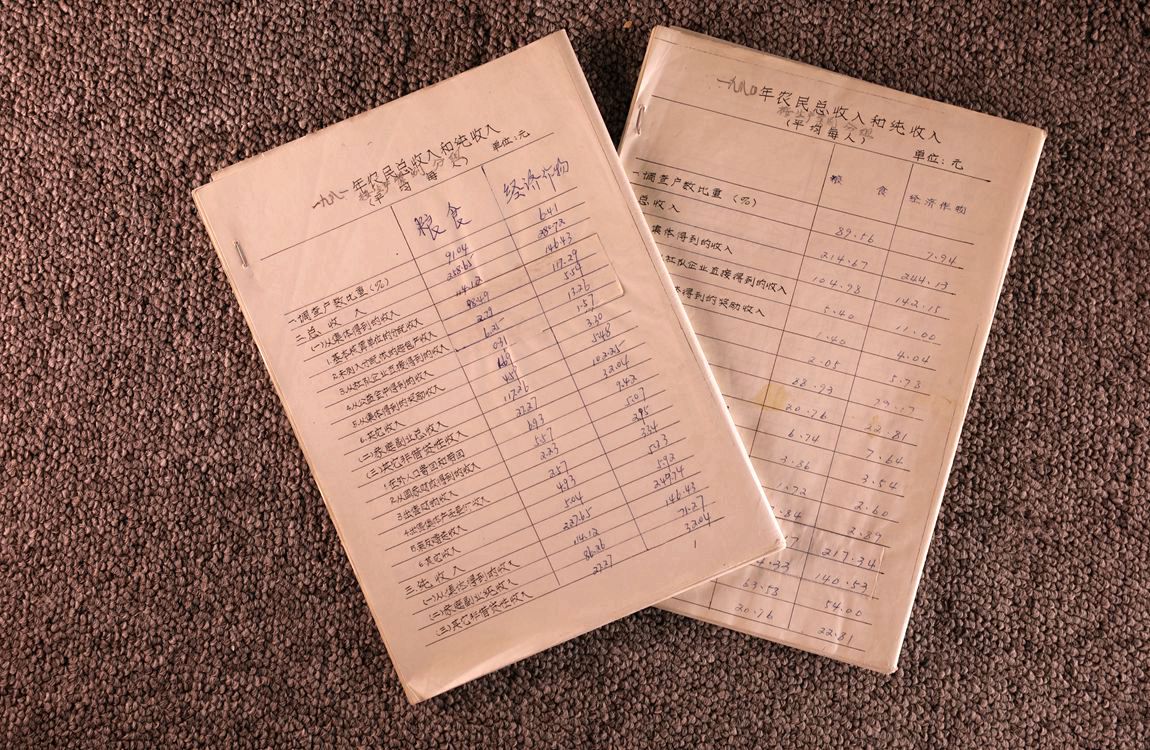 一九八一年农民总收入和纯收入
(平均每人)
单位:元
粮食 经济作物
一.调查户数比重(%) 91.04 6.41
二.总收入 258.65 280.73
(一)从集体得到的收入 114.12 146.43
1.基本核算单位的分配收入 98.49 117.29
2.包产收入 2.79 5.54
3.从社队企业直接得到的收入 6.25 13.26
4.从公益金中得到的收入 1.57
5.从集体得到的奖励收入 3.30
6.其它收入 5.48
(二)家庭副业总收入 117.26 102.25
(三)其它非借贷性收入 27.27 32.04
1.在外人口寄回和带回 6.93 9.42
2.从国家财政得到的收入 5.57 5.07
3.出售财物收入 2.23 2.95
4.收入 2.57 3.34
5.收入 4.93 5.33
6.其它收入 5.04 5.92
三.纯收入 227.65 249.74
(一)从集体得到的收入 114.12 146.43
(二)家庭副业纯收入 86.26 71.27
(三)其它非借贷性收入 27.27 32.04
1
一九八〇年农民总收入和纯收入
(平均每人)
单位:元
粮食 经济作物
一.调查户数比重(%) 89.56 7.94
总收入 214.67 244.13
集体得到的收入 104.98 142.15
社队企业直接得到的收入 5.40 11.00
得到的奖励收入 .40 4.04
2.05 5.73
88.93 79.17
20.76 22.81
6.74 7.64
3.36 3.54
1.72 2.60
.84 2.89
217.34
.33 140.53
63.53 54.00
20.76 22.81